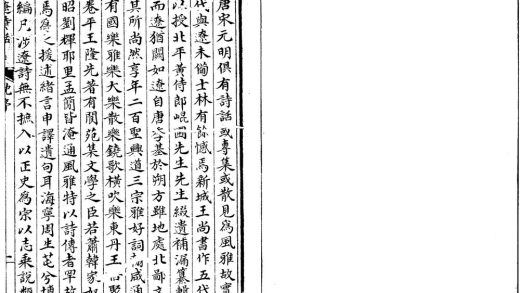 唐宋元明俱有詩話或專集或散見爲風雅故實
代與遼未備士林有餘憾焉新城王尚書作五代
以授北平黄侍郎崐圃先生先生綴遺補漏纂輯
而遼猶闕如遼自唐季基於朔方雖地處北鄙文
其所尚然享年二百聖興道三宗雅好詞咸通
有國樂雅樂大樂散樂鐃歌横吹樂東丹王心聚
卷平王隆先著有閬苑集文學之臣若蕭韓家奴
昭劉輝耶里孟簡皆淹通風雅特以詩傳者罕故
爲爰援述緒言申譯遺句耳海寧周生芚兮
編凡涉遼詩無不摭入以正史爲宗以志乘說類
遼詩話
沈序
二